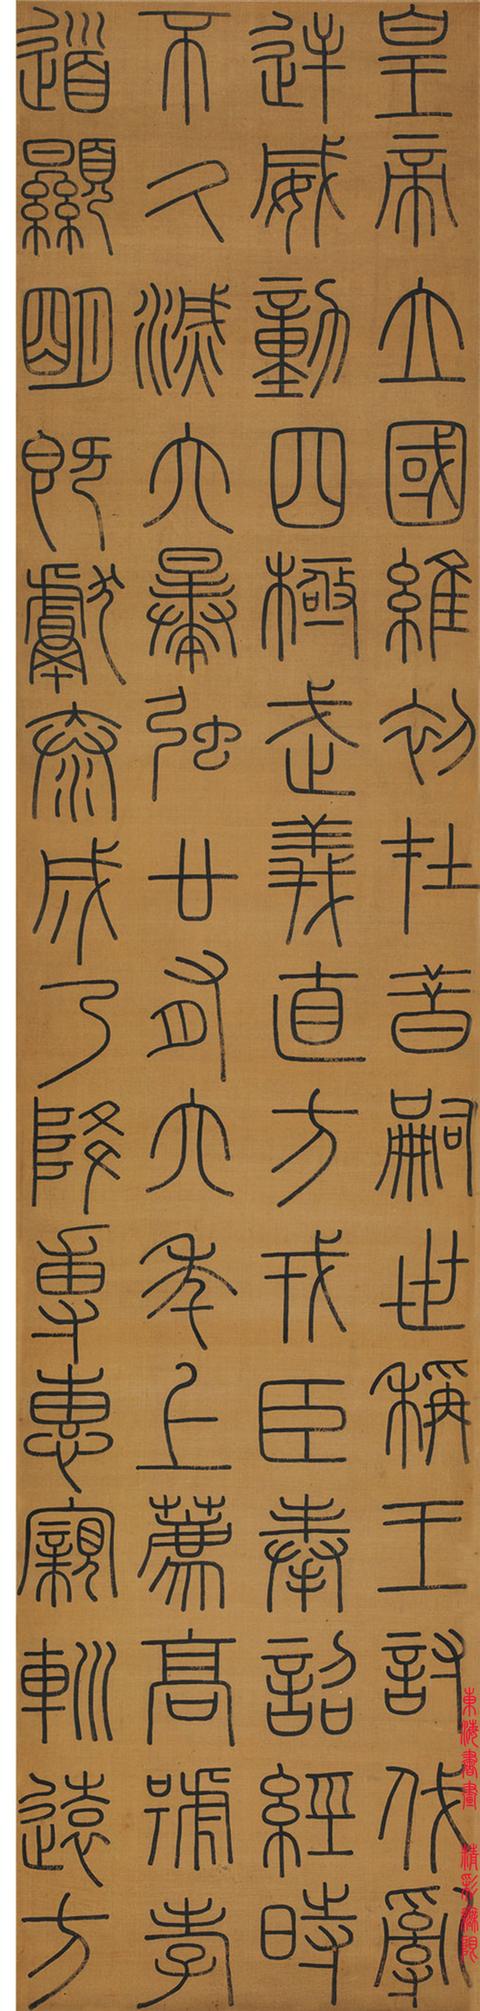 皇帝立國維初在昔嗣世稱王討伐亂
逆威動四極武義直方戎臣奉詔經時
不久滅六暴強廿有六年上薦高號孝
道顯明既獻泰成乃降專惠親巡遠方
東海書畫 精彩